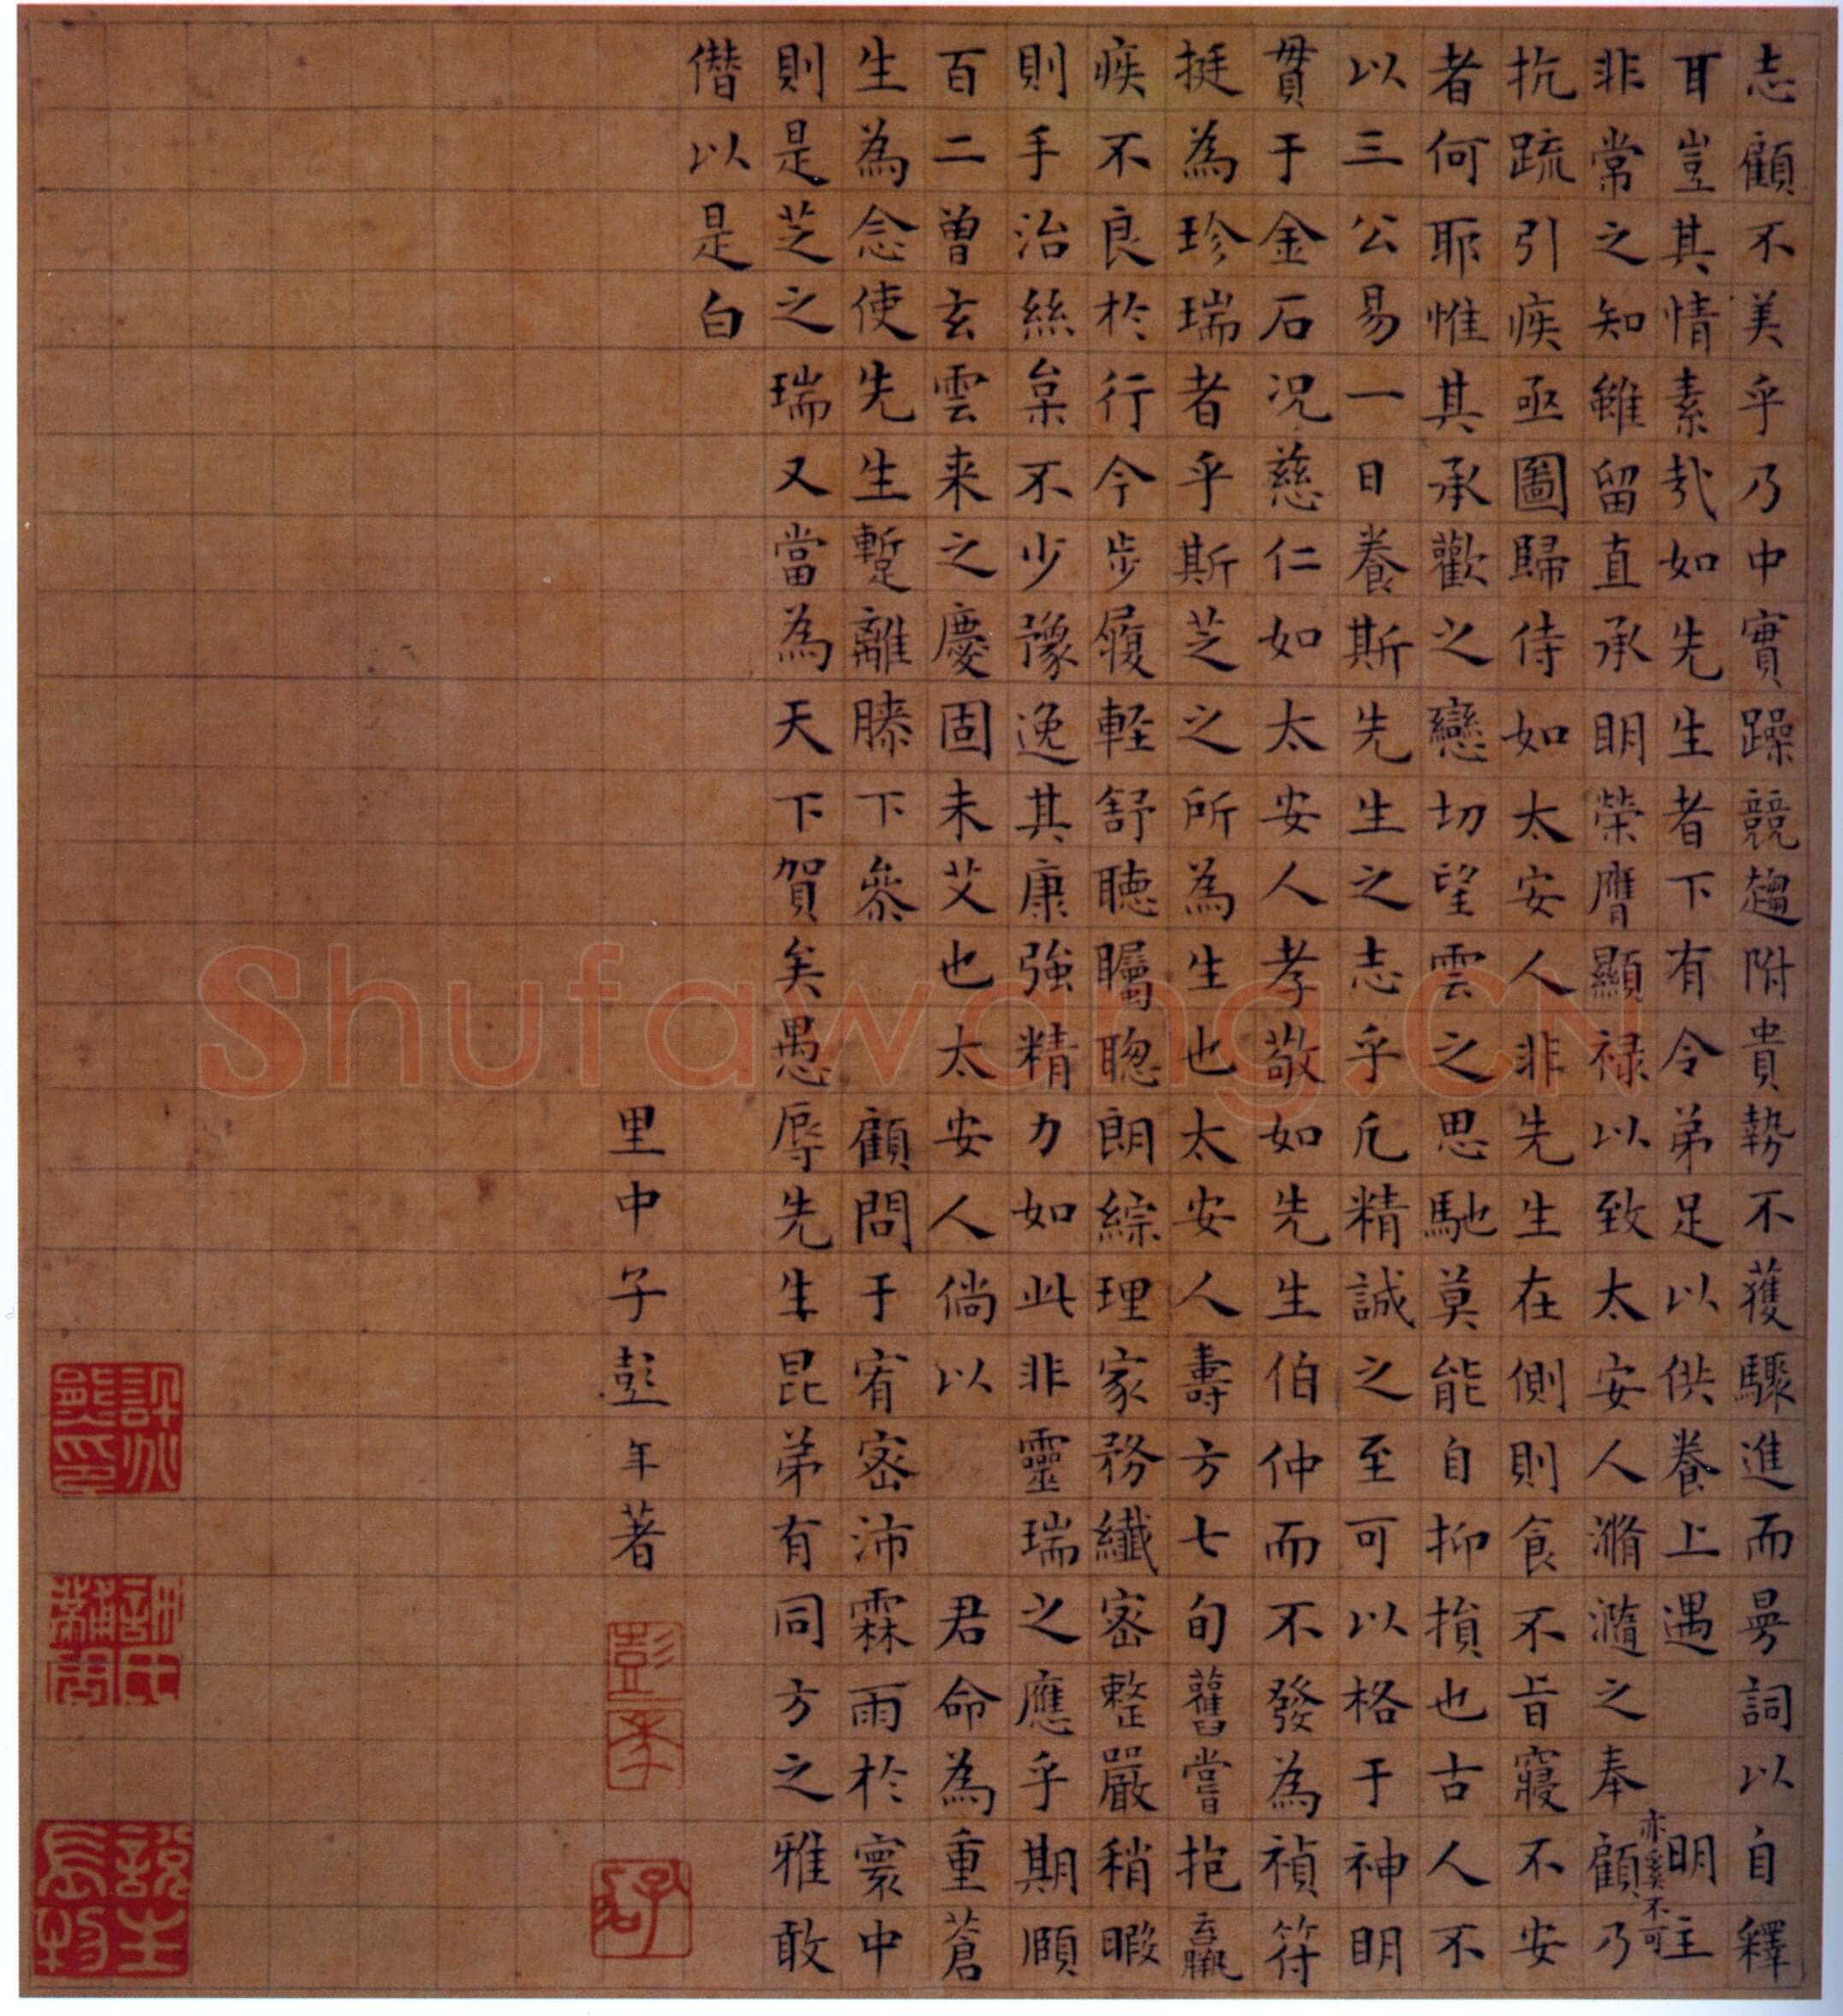 志顧不美乎乃中實躁競趨附貴勢不獲驟進而昜詞以自釋
耳豈其情素哉如先生者下有令弟足以供養上遇明主
亦奚不可
非常之知雖留直承明榮膺顯祿以致太安人滫瀡之奉顧乃
抗疏引疾亟圖歸侍如太安人非先生在側則食不旨寢不安
者何耶惟其承歡之戀切望雲之思馳莫能自抑損也古人不
以三公易一日養斯先生之志乎凢精誠之至可以格于神明
貫于金石況慈仁如太安人孝敬如先生伯仲而不發為禎符
挺為珍瑞者乎斯芝之所為生也太安人壽方七旬舊嘗抱羸
疾不良於行今步履軽舒聽矚聰朗綜理家務纖密整嚴稍暇
則手治絲枲不少豫逸其康強精力如此非靈瑞之應乎期頤
百二曾玄雲来之慶固未艾也太安人倘以君命為重蒼
生為念使先生蹔離膝下叅顧問于宥密沛霖雨於寰中
則是芝之瑞又當為天下賀矣愚辱先生昆弟有同方之雅敢
僭以是白
里中子彭年著
彭
年
Shufawang.CN